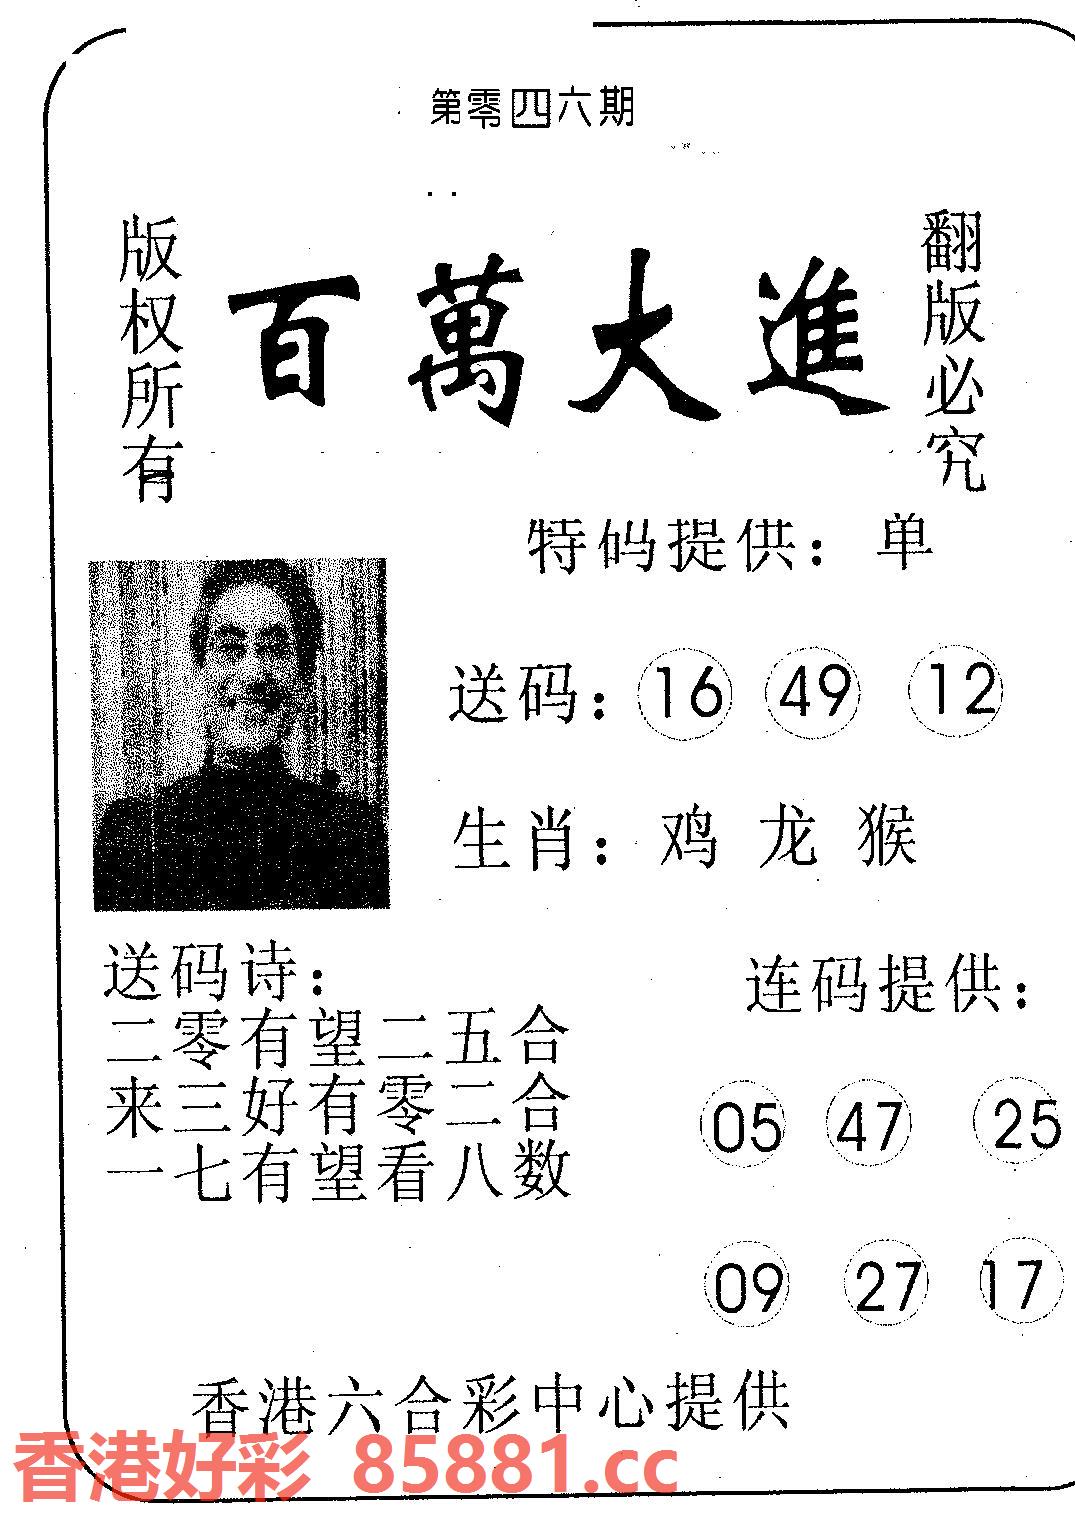 第零四六期
版权所有
百萬大進
翻版必究
特码提供：单
送码：16 49 12
生肖：鸡 龙 猴
送码诗：
二零有望二五合
来三好有零二合
一七有望看八数
连码提供：
05 47 25
09 27 17
香港六合彩中心提供
香港好彩 85881.cc